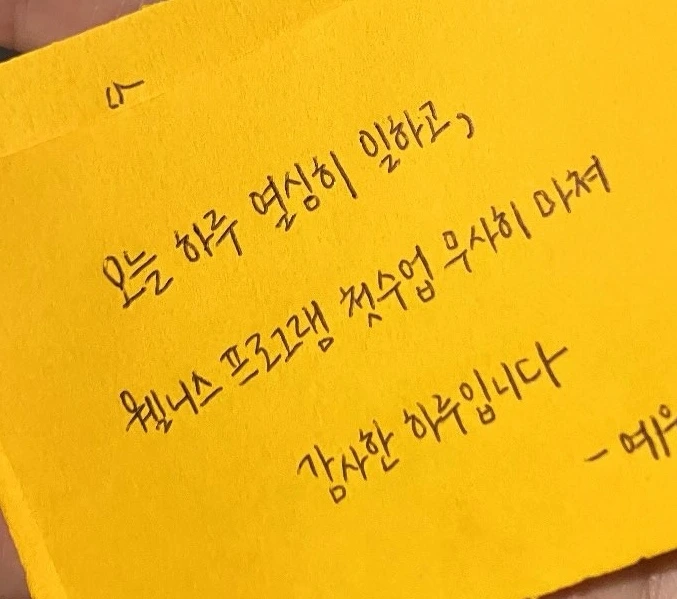 오늘 하루 열심히 일하고,
웰니스 프로그램 첫수업 무사히 마쳐
감사한 하루입니다